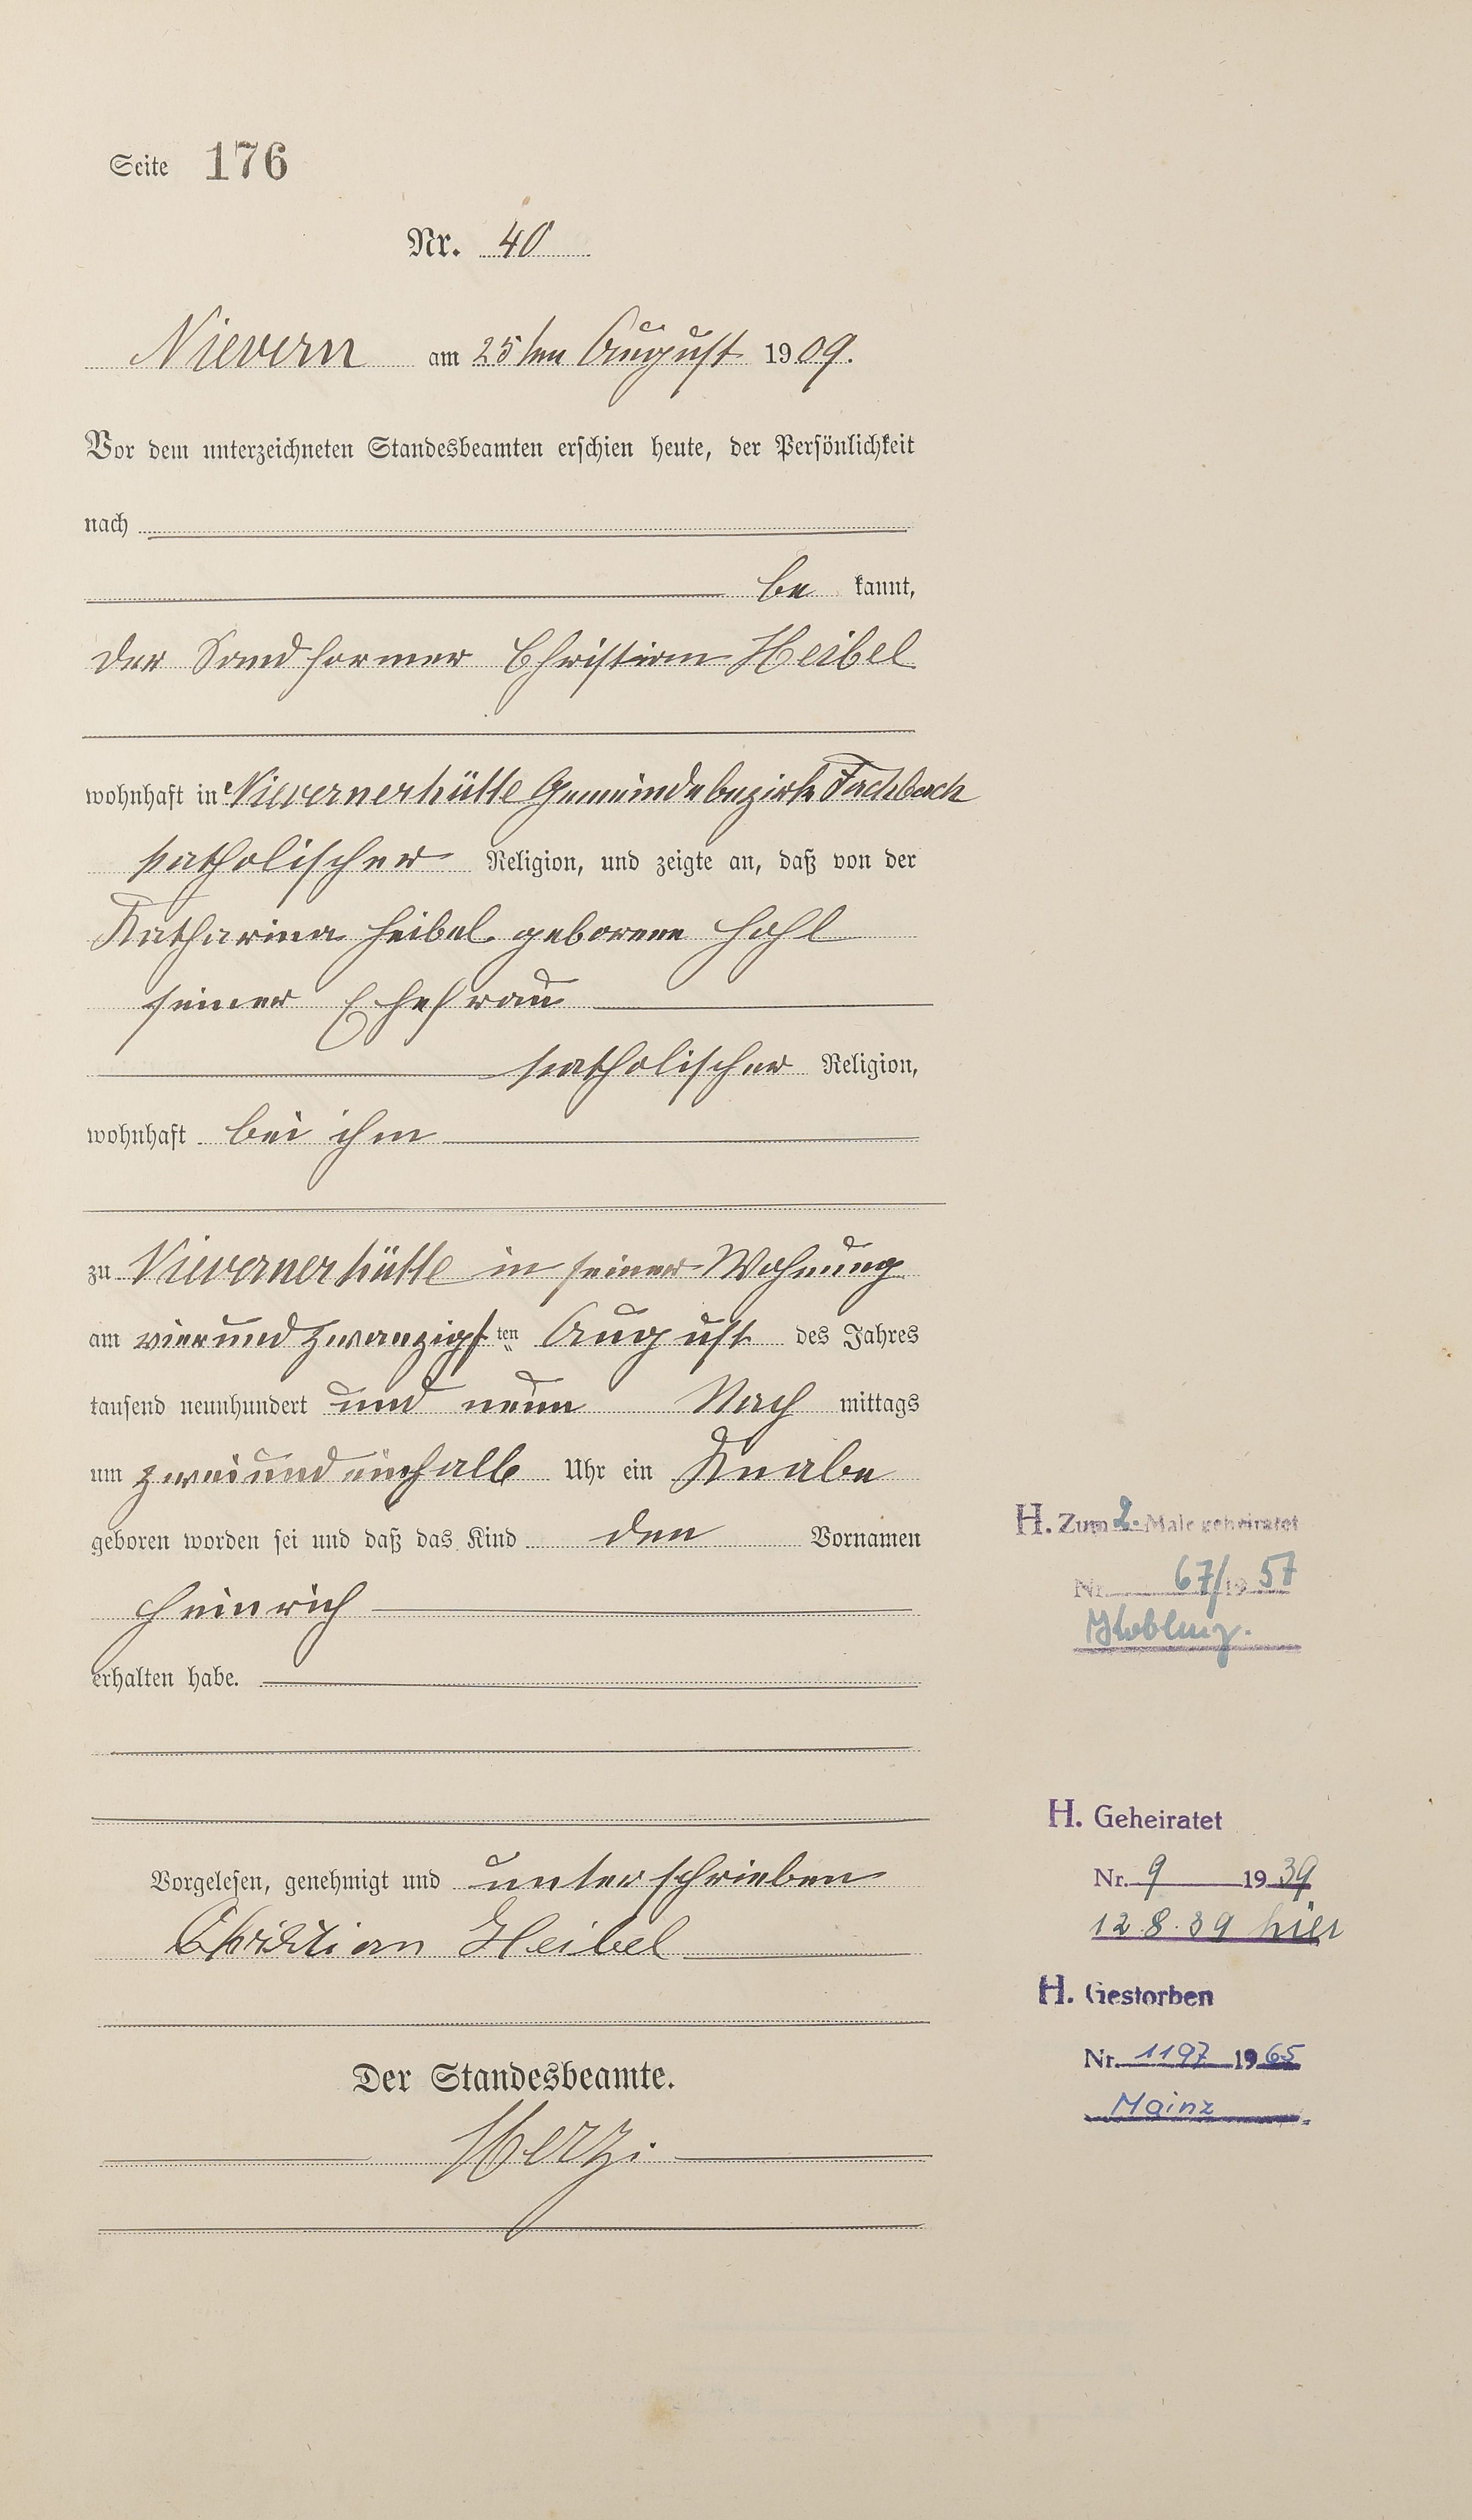 Seite 176
Nr. 40
Nievern am 25ten August 1909.
Vor dem unterzeichneten Standesbeamten erschien heute, der Persönlichkeit
nach
be kannt,
der Sandformer Christian Heibel
wohnhaft in Nievernerhütte Gemeindebezirk Fachbach
katholischer Religion, und zeigte an, daß von der
Katharina Heibel geborene Hohl
seiner Ehefrau
katholischer Religion,
wohnhaft bei ihm
zu Nievernerhütte in seiner Wohnung
am vierundzwanzigsten August des Jahres
tausend neunhundert und neun Nach mittags
um zweiundeinhalb Uhr ein Knabe
geboren worden sei und daß das Kind den Vornamen
Heinrich
erhalten habe.
Vorgelesen, genehmigt und unterschrieben
Christian Heibel
Der Standesbeamte.
H. Zum 2. Male geheiratet
Nr. 67/1957
Koblenz.
H. Geheiratet
Nr. 9 1939
12.8.39 hier
H. Gestorben
Nr. 1197 1965
Mainz